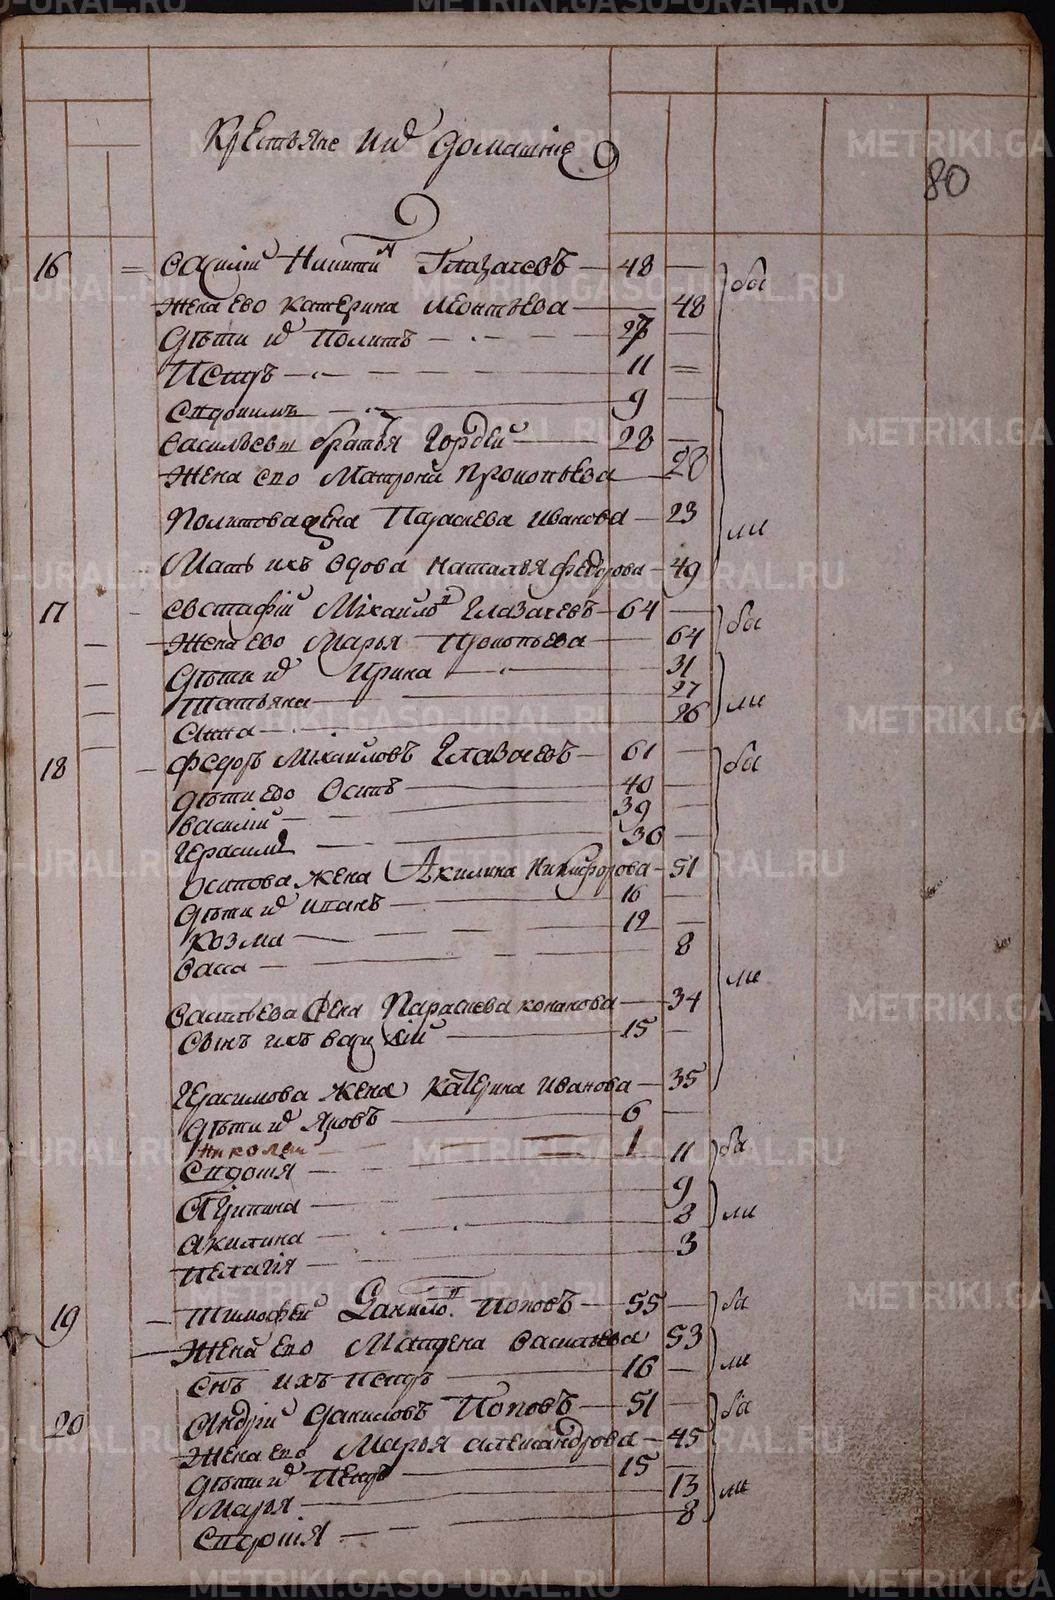 Крестьяне и их домашние
80
16 Василий Никитин Глазачевъ 48
Жена ево Катерина Леонтьева 48
Дѣти их Политъ 27
Петръ 11
Спдонимъ 9
Васильевы братья Гордей 28
Жена ево Матрона Прокопьева 28
Политова жена Параскева Иванова 23
Мать ихъ вдова Наталья Федорова 49
бы
ли
17 Евстафий Михайловъ Глазачевъ 64
Жена ево Марья Прокопьева 64
Дѣти их Ирина 31
Татьяна 27
Анна 26
бы
ли
18 Федоръ Михайловъ Глазачевъ 61
Дѣти ево Осипъ 40
Василий 39
Герасимъ 30
Осипова жена Акилина Никифорова 51
Дѣти их Иванъ 16
Козма 12
Васса 8
Васильева жена Параскева Кононова 34
Сынъ ихъ Василий 15
Герасимова жена Катерина Иванова 35
Дѣти их Яковъ 6
Николай 1
Евдокия 11
Агрипина 9
Акилина 8
Пелагия 3
бы
ли
бы
ли
19 Тимофей Данилов Поповъ 55
Жена ево Матрена Васильева 53
Снъ ихъ Петръ 16
бы
ли
20 Андрий Даниловъ Поповъ 51
Жена ево Марья Александрова 45
Дѣти их Петръ 15
Марья 13
Евдокия 8
бы
ли
METRIKI.GASO-URAL.RU